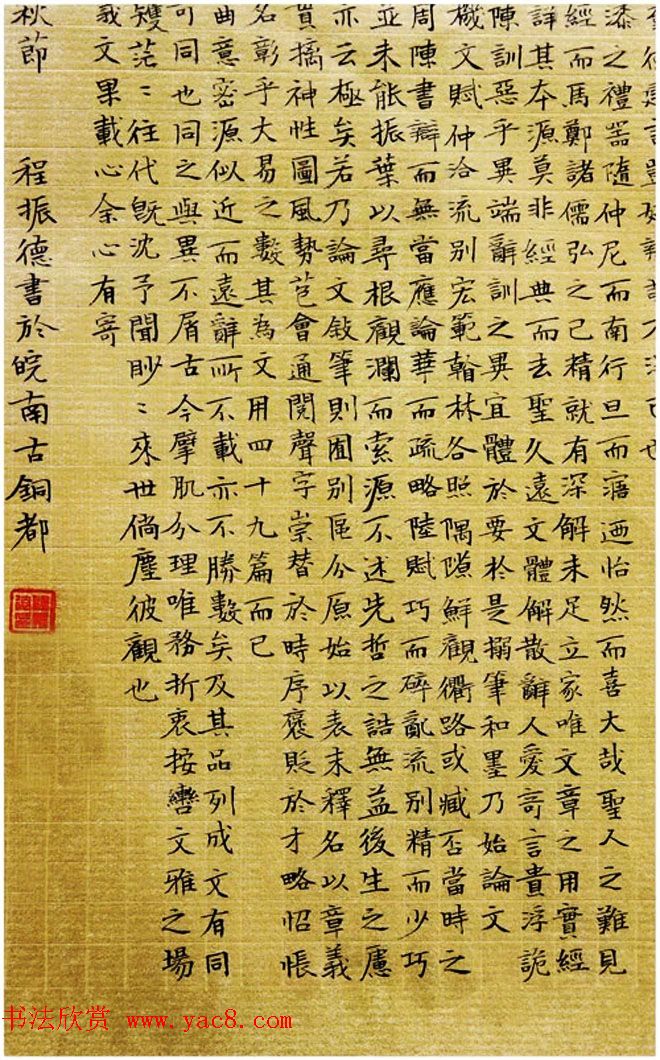 豈好辯哉不得已也
漆之禮器隨仲尼而南行旦而寤迺怡然而喜大哉聖人之難見
經而馬鄭諸儒弘之已精就有深解未足立家唯文章之用實經
詳其本源莫非經典而去聖久遠文體解散辭人愛奇言貴浮詭
陳訓惡乎異端辭訓之異宜體於要於是搦筆和墨乃始論文
機文賦仲洽流別宏範翰林各照隅隙鮮觀衢路或臧否當時之
周陳書辯而無當應論華而疏略陸賦巧而碎亂流別精而少巧
並未能振葉以尋根觀瀾而索源不述先哲之誥無益後生之慮
亦云極矣若乃論文敘筆則囿別區分原始以表末釋名以章義
貫摛神性圖風勢苞會通閱聲字崇替於時序褒貶於才略怊悵
名彰乎大易之數其為文用四十九篇而已
曲意密源似近而遠辭所不載亦不勝數矣及其品列成文有同
可同也同之與異不屑古今擘肌分理唯務折衷按轡文雅之場
矱茫〻往代既沈予聞眇〻來世倘塵彼觀也
文果載心余心有寄
秋節 程振德書於皖南古銅都
书法欣赏 www.yac8.com